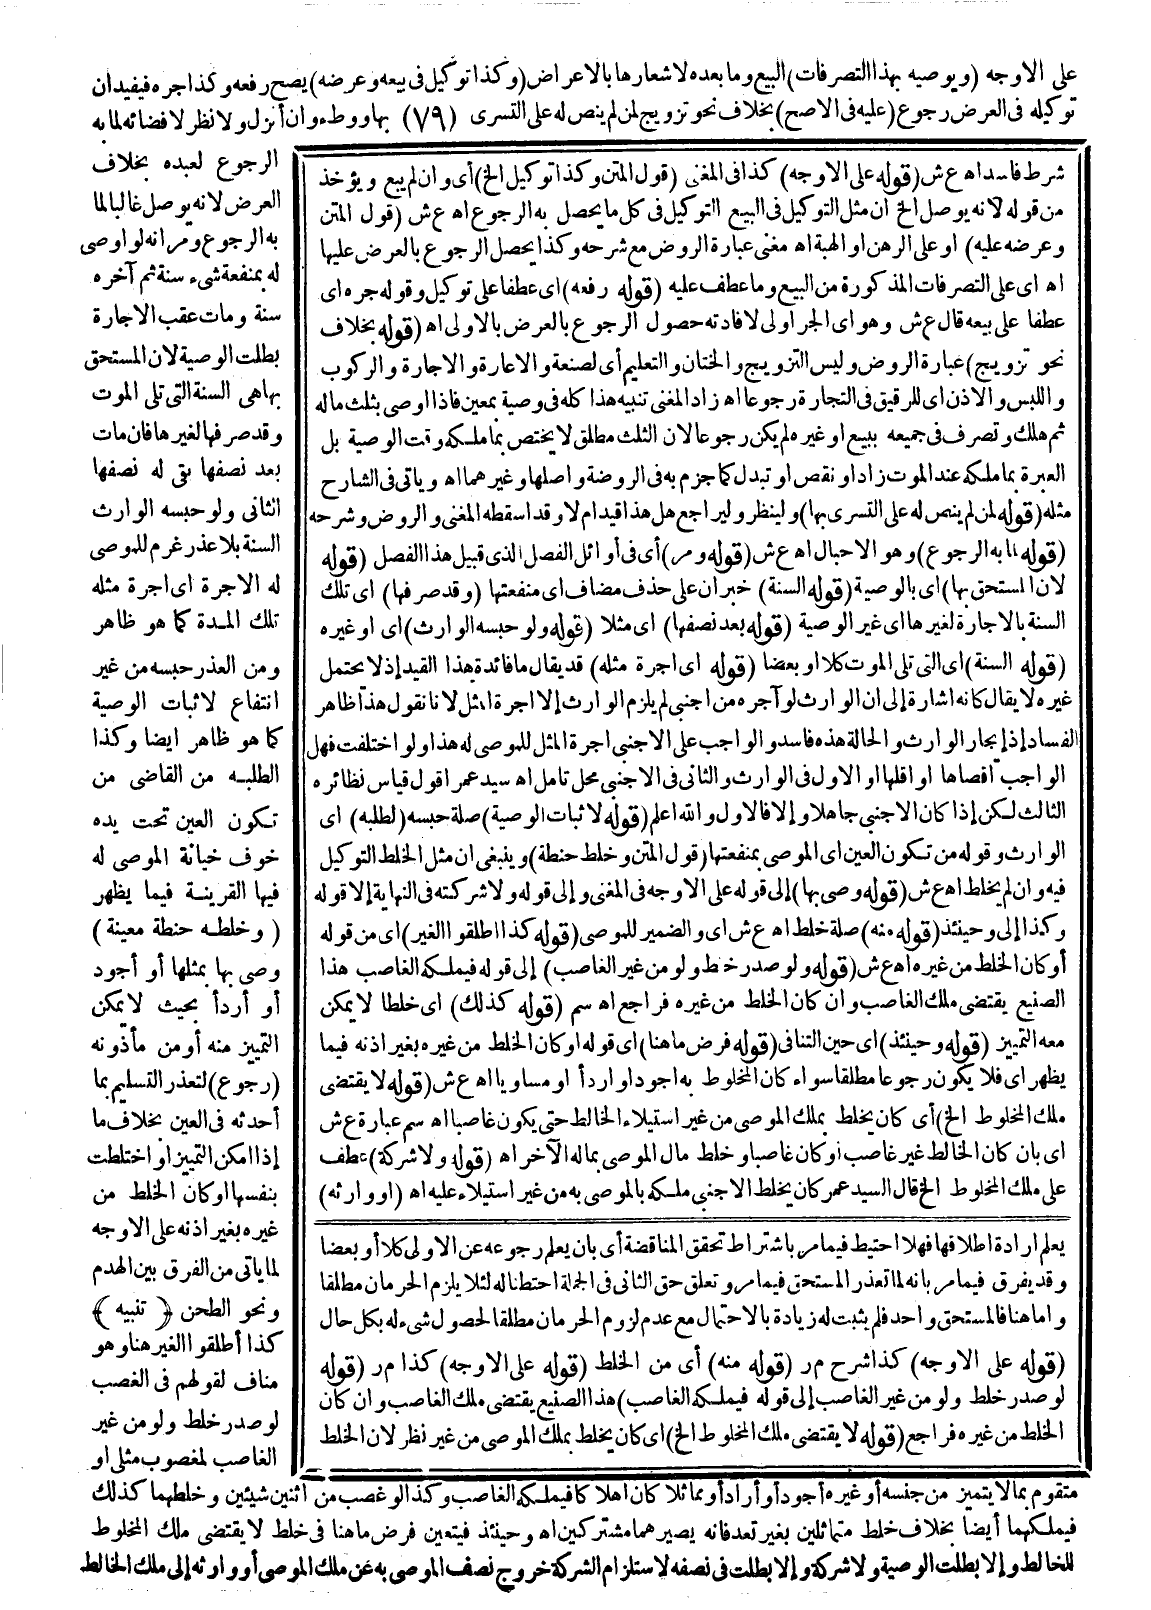 على الاوجه (ويوصيه بهذا التصرفات) البيع وما بعده لاشعارها بالاعراض (وكذا توكيل فى بيعه وعرضه) يصح رفعه وكذا جره فيفيد ان
توكيله فى العرض رجوع (عليه فى الاصح) بخلاف نحو تزويج لمن لم ينص له على التسرى (٧٩) بها ووطء وان أنزل ولا نظر لافضائه لما به
الرجوع لعبده بخلاف
العرض لانه يوصل غالبا لما
به الرجوع ومر انه لو اوصى
له بمنفعة شىء سنة ثم آجره
سنة ومات عقب الاجارة
بطلت الوصية لان المستحق
بها هى السنة التى تلى الموت
وقد صرفها لغيرها فان مات
بعد نصفها بقى له نصفها
الثانى ولو حبسه الوارث
السنة بلا عذر غرم للموصى
له الاجرة اى اجرة مثله
تلك المدة كما هو ظاهر
ومن العذر حبسه من غير
انتفاع لاثبات الوصية
كما هو ظاهر ايضا وكذا
لطلبه من القاضى من
تكون العين تحت يده
خوف خيانة الموصى له
فيها القرينة فيما يظهر
(وخلطه حنطة معينة)
وصى بها بمثلها أو أجود
أو أردأ بحيث لا يمكن
التمييز منه أو من مأذونه
(رجوع) لتعذر التسليم بما
أحدثه فى العين بخلاف ما
إذا امكن التمييز او اختلطت
بنفسها او كان الخلط من
غيره بغير اذنه على الاوجه
لما ياتى من الفرق بين الهدم
ونحو الطحن (تنبيه)
كذا أطلقوا الغير هنا وهو
مناف لقولهم فى الغصب
لو صدر خلط ولو من غير
الغاصب لمغصوب مثلى او
شرط فاسد اه ع ش (قوله على الاوجه) كذا فى المغنى (قول المتن وكذا توكيل الخ) أى وان لم يبع ويؤخذ
من قوله لانه يوصل الخ ان مثل التوكيل فى البيع التوكيل فى كل ما يحصل به الرجوع اه ع ش (قول المتن
وعرضه عليه) او على الرهن او الهبة اه مغنى عبارة الروض مع شرحه وكذا يحصل الرجوع بالعرض عليها
اه اى على التصرفات المذكورة من البيع وما عطف عليه (قوله رفعه) اى عطفا على توكيل وقوله جره اى
عطفا على بيعه قال ع ش وهو اى الجر اولى لافادته حصول الرجوع بالعرض بالاولى اه (قوله بخلاف
نحو تزويج) عبارة الروض وليس التزويج والختان والتعليم أى لصنعة والاعارة والاجارة والركوب
واللبس والاذن اى للرقيق فى التجارة رجوعا اه زاد المغنى تنبيه هذا كله فى وصية بمعين فاذا اوصى بثلث ماله
ثم هلك وتصرف فى جميعه ببيع او غيره لم يكن رجوعا لان الثلث مطلق لا يختص بما ملكه وقت الوصية بل
العبرة بما ملكه عند الموت زاد او نقص او تبدل كما جزم به فى الروضة واصلها وغيرهما اه وياتى فى الشارح
مثله (قوله لمن لم ينص له على التسرى بها) ولينظر وليراجع هل هذا قيد ام لا وقد اسقطه المغنى والروض وشرحه
(قوله لما به الرجوع) وهو الاحبال اه ع ش (قوله ومر) أى فى أوائل الفصل الذى قبيل هذا الفصل (قوله
لان المستحق بها) اى بالوصية (قوله السنة) خبر ان على حذف مضاف اى منفعتها (وقد صرفها) اى تلك
السنة بالاجارة لغيرها اى غير الوصية (قوله بعد نصفها) اى مثلا (قوله ولو حبسه الوارث) اى او غيره
(قوله السنة) اى التى تلى الموت كلا او بعضا (قوله اى اجرة مثله) قد يقال ما فائدة هذا القيد إذ لا يحتمل
غيره لا يقال كانه اشارة إلى ان الوارث لو آجره من اجنبى لم يلزم الوارث إلا اجرة المثل لا نا نقول هذا ظاهر
الفساد إذ إيجار الوارث والحالة هذه فاسد والواجب على الاجنبى اجرة المثل للموصى له هذا ولو اختلفت فهل
الواجب اقصاها او اقلها او الاول فى الوارث والثانى فى الاجنبى محل تامل اه سيد عمر اقول قياس نظائره
الثالث لكن إذا كان الاجنبى جاهلا وإلا فالاول والله اعلم (قوله لاثبات الوصية) صلة حبسه (لطلبه) اى
الوارث وقوله من تكون العين اى الموصى بمنفعتها (قول المتن وخلط حنطة) وينبغى ان مثل الخلط التوكيل
فيه وان لم يخلط اه ع ش (قوله وصى بها) إلى قوله على الاوجه فى المغنى وإلى قوله ولا شركته فى النهاية إلا قوله
وكذا إلى وحينئذ (قوله منه) صلة خلط اه ع ش اى والضمير للموصى (قوله كذا اطلقوا الغير) اى من قوله
أو كان الخلط من غيره اه ع ش (قوله ولو صدر خلط ولو من غير الغاصب) إلى قوله فيملكه الغاصب هذا
الصنيع يقتضى ملك الغاصب وان كان الخلط من غيره فراجع اه سم (قوله كذلك) اى خلطا لا يمكن
معه التمييز (قوله وحينئذ) اى حين التنافى (قوله فرض ما هنا) اى قوله او كان الخلط من غيره بغير اذنه فيما
يظهر اى فلا يكون رجوعا مطلقا سواء كان المخلوط به اجود او اردأ او مساويا اه ع ش (قوله لا يقتضى
ملك المخلوط الخ) أى كان يخلط بملك الموصى من غير استيلاء الخالط حتى يكون غاصبا اه سم عبارة ع ش
اى بان كان الخالط غير غاصب او كان غاصبا وخلط مال الموصى بماله الآخر اه (قوله ولا شركة) عطف
على ملك المخلوط الخ قال السيد عمر كان يخلط الاجنبى ملكه بالموصى به من غير استيلاء عليه اه (او وارثه)
يعلم ارادة اطلاقها فهلا احتيط فيما مر باشتراط تحقق المناقضة أى بان يعلم رجوعه عن الاولى كلا أو بعضا
وقد يفرق فيما مر بانه لما تعذر المستحق فيما مر وتعلق حق الثانى فى الجملة احتطنا له لئلا يلزم الحرمان مطلقا
واما هنا فالمستحق واحد فلم يثبت له زيادة بالاحتمال مع عدم لزوم الحرمان مطلقا لحصول شىء له بكل حال
(قوله على الاوجه) كذا شرح مر (قوله منه) أى من الخلط (قوله على الاوجه) كذا مر (قوله
لو صدر خلط ولو من غير الغاصب إلى قوله فيملكه الغاصب) هذا الصنيع يقتضى ملك الغاصب وان كان
الخلط من غيره فراجع (قوله لا يقتضى ملك المخلوط الخ) اى كان يخلط بملك الموصى من غير نظر لان الخلط
متقوم بما لا يتميز من جنسه أو غيره أجود أو أرادأ ومماثلا كان اهلاكا فيملكه الغاصب وكذا لو غصب من اثنين شيئين وخلطهما كذلك
فيملكهما أيضا بخلاف خلط متماثلين بغير تعد فانه يصيرهما مشتركين اه وحينئذ فيتعين فرض ما هنا فى خلط لا يقتضى ملك المخلوط
للخالط وإلا بطلت الوصية ولا شركة وإلا بطلت فى نصفه لاستلزام الشركة خروج نصف الموصى به عن ملك الموصى أو وارثه إلى ملك الخالط